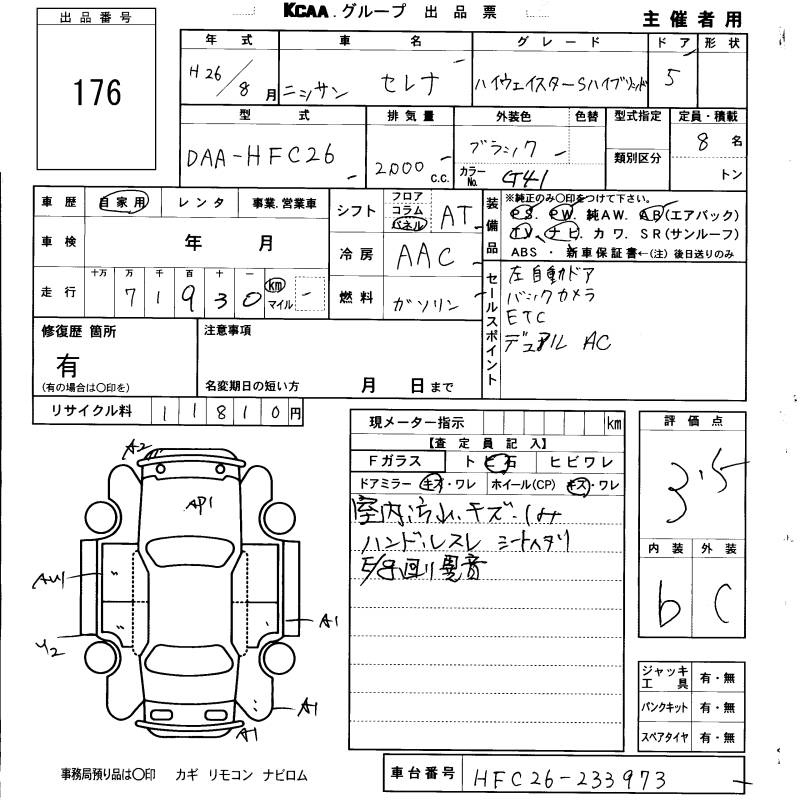 KCAA.グループ 出品票
主催者用
出品番号
176
年式 車名 グレード ドア 形状
H26/8月 ニッサン セレナ ハイウェイスターSハイブリッド 5
型式 排気量 外装色 色替 型式指定 定員・積載
DAA-HFC26 2,000 c.c. ブラック 8名
カラーNo. G41 類別区分 トン
車歴 自家用 レンタ 事業.営業車
車検 年 月
走行 十万 万 千 百 十 一
7 1 9 3 0 km マイル
シフト フロア コラム パネル AT
冷房 AAC
燃料 ガソリン
装備品
※純正のみ○印をつけて下さい。
PS. PW. 純AW. AB(エアバック)
TV. ナビ. カワ. SR(サンルーフ)
ABS ・ 新車保証書←(注)後日送りのみ
セールスポイント
左自動ドア
バックカメラ
ETC
デュアル AC
修復歴 箇所
有
(有の場合は○印を)
注意事項
名変期日の短い方 月 日まで
リサイクル料 11810円
現メーター指示 km
【査定員記入】
Fガラス ト ヒ石 ヒビワレ
ドアミラー キズ・ワレ ホイール(CP) キズ・ワレ
室内汚れ.キズ.
ハンドルスレ シートヘタリ
回り異音
評価点
3.5
内装 外装
b C
ジャッキ工具 有・無
パンクキット 有・無
スペアタイヤ 有・無
A2
AP1
AU1
A1
A1
A1
事務局預り品は○印 カギ リモコン ナビロム
車台番号 HFC26-233973